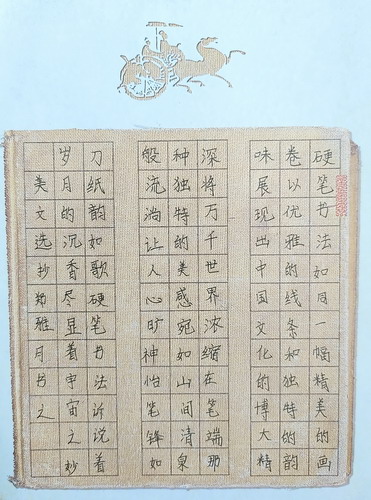 硬笔书法如同一幅精美的画
卷以优雅的线条和独特的韵
味展现出中国文化的博大精
深将万千世界浓缩在笔端那
种独特的美感宛如山间清泉
般流淌让人心旷神怡笔锋如
刀纸韵如歌硬笔书法诉说着
岁月的沉香尽显着宇宙之妙
美文选抄郑雅月书之